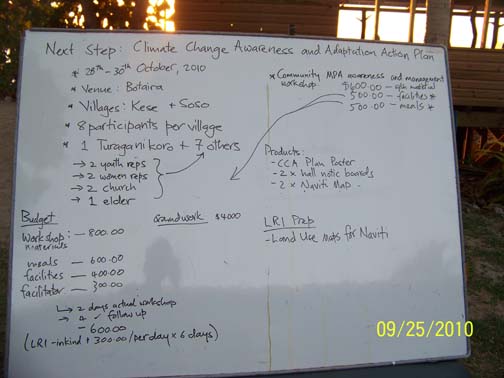 Next Step: Climate Change Awareness and Adaptation Action Plan
* 28th - 30th October, 2010
* Venue: Botaira
* Villages: Kese + Soso
* 8 participants per village
* 1 Turaganikoro + 7 others
→ 2 youth reps
→ 2 women reps
→ 2 church
→ 1 elder
* Community MPA awareness and management
workshop
$600.00 -
500.00 - facilities *
500.00 - meals *
Products:
- CCA Plan Poster
- 2 x hall notic boards
- 2 x Naviti Map
Budget
Workshop: - 800.00
materials
meals - 600.00
facilities - 400.00
facilitator - 300.00
↳ 2 days actual workshop
→ 4 follow up
- 600.00
(LRI - inkind + 300.00/per day x 6 days)
Groundwork $4000
LRI Prep
- Land Use maps for Naviti
09/25/2010